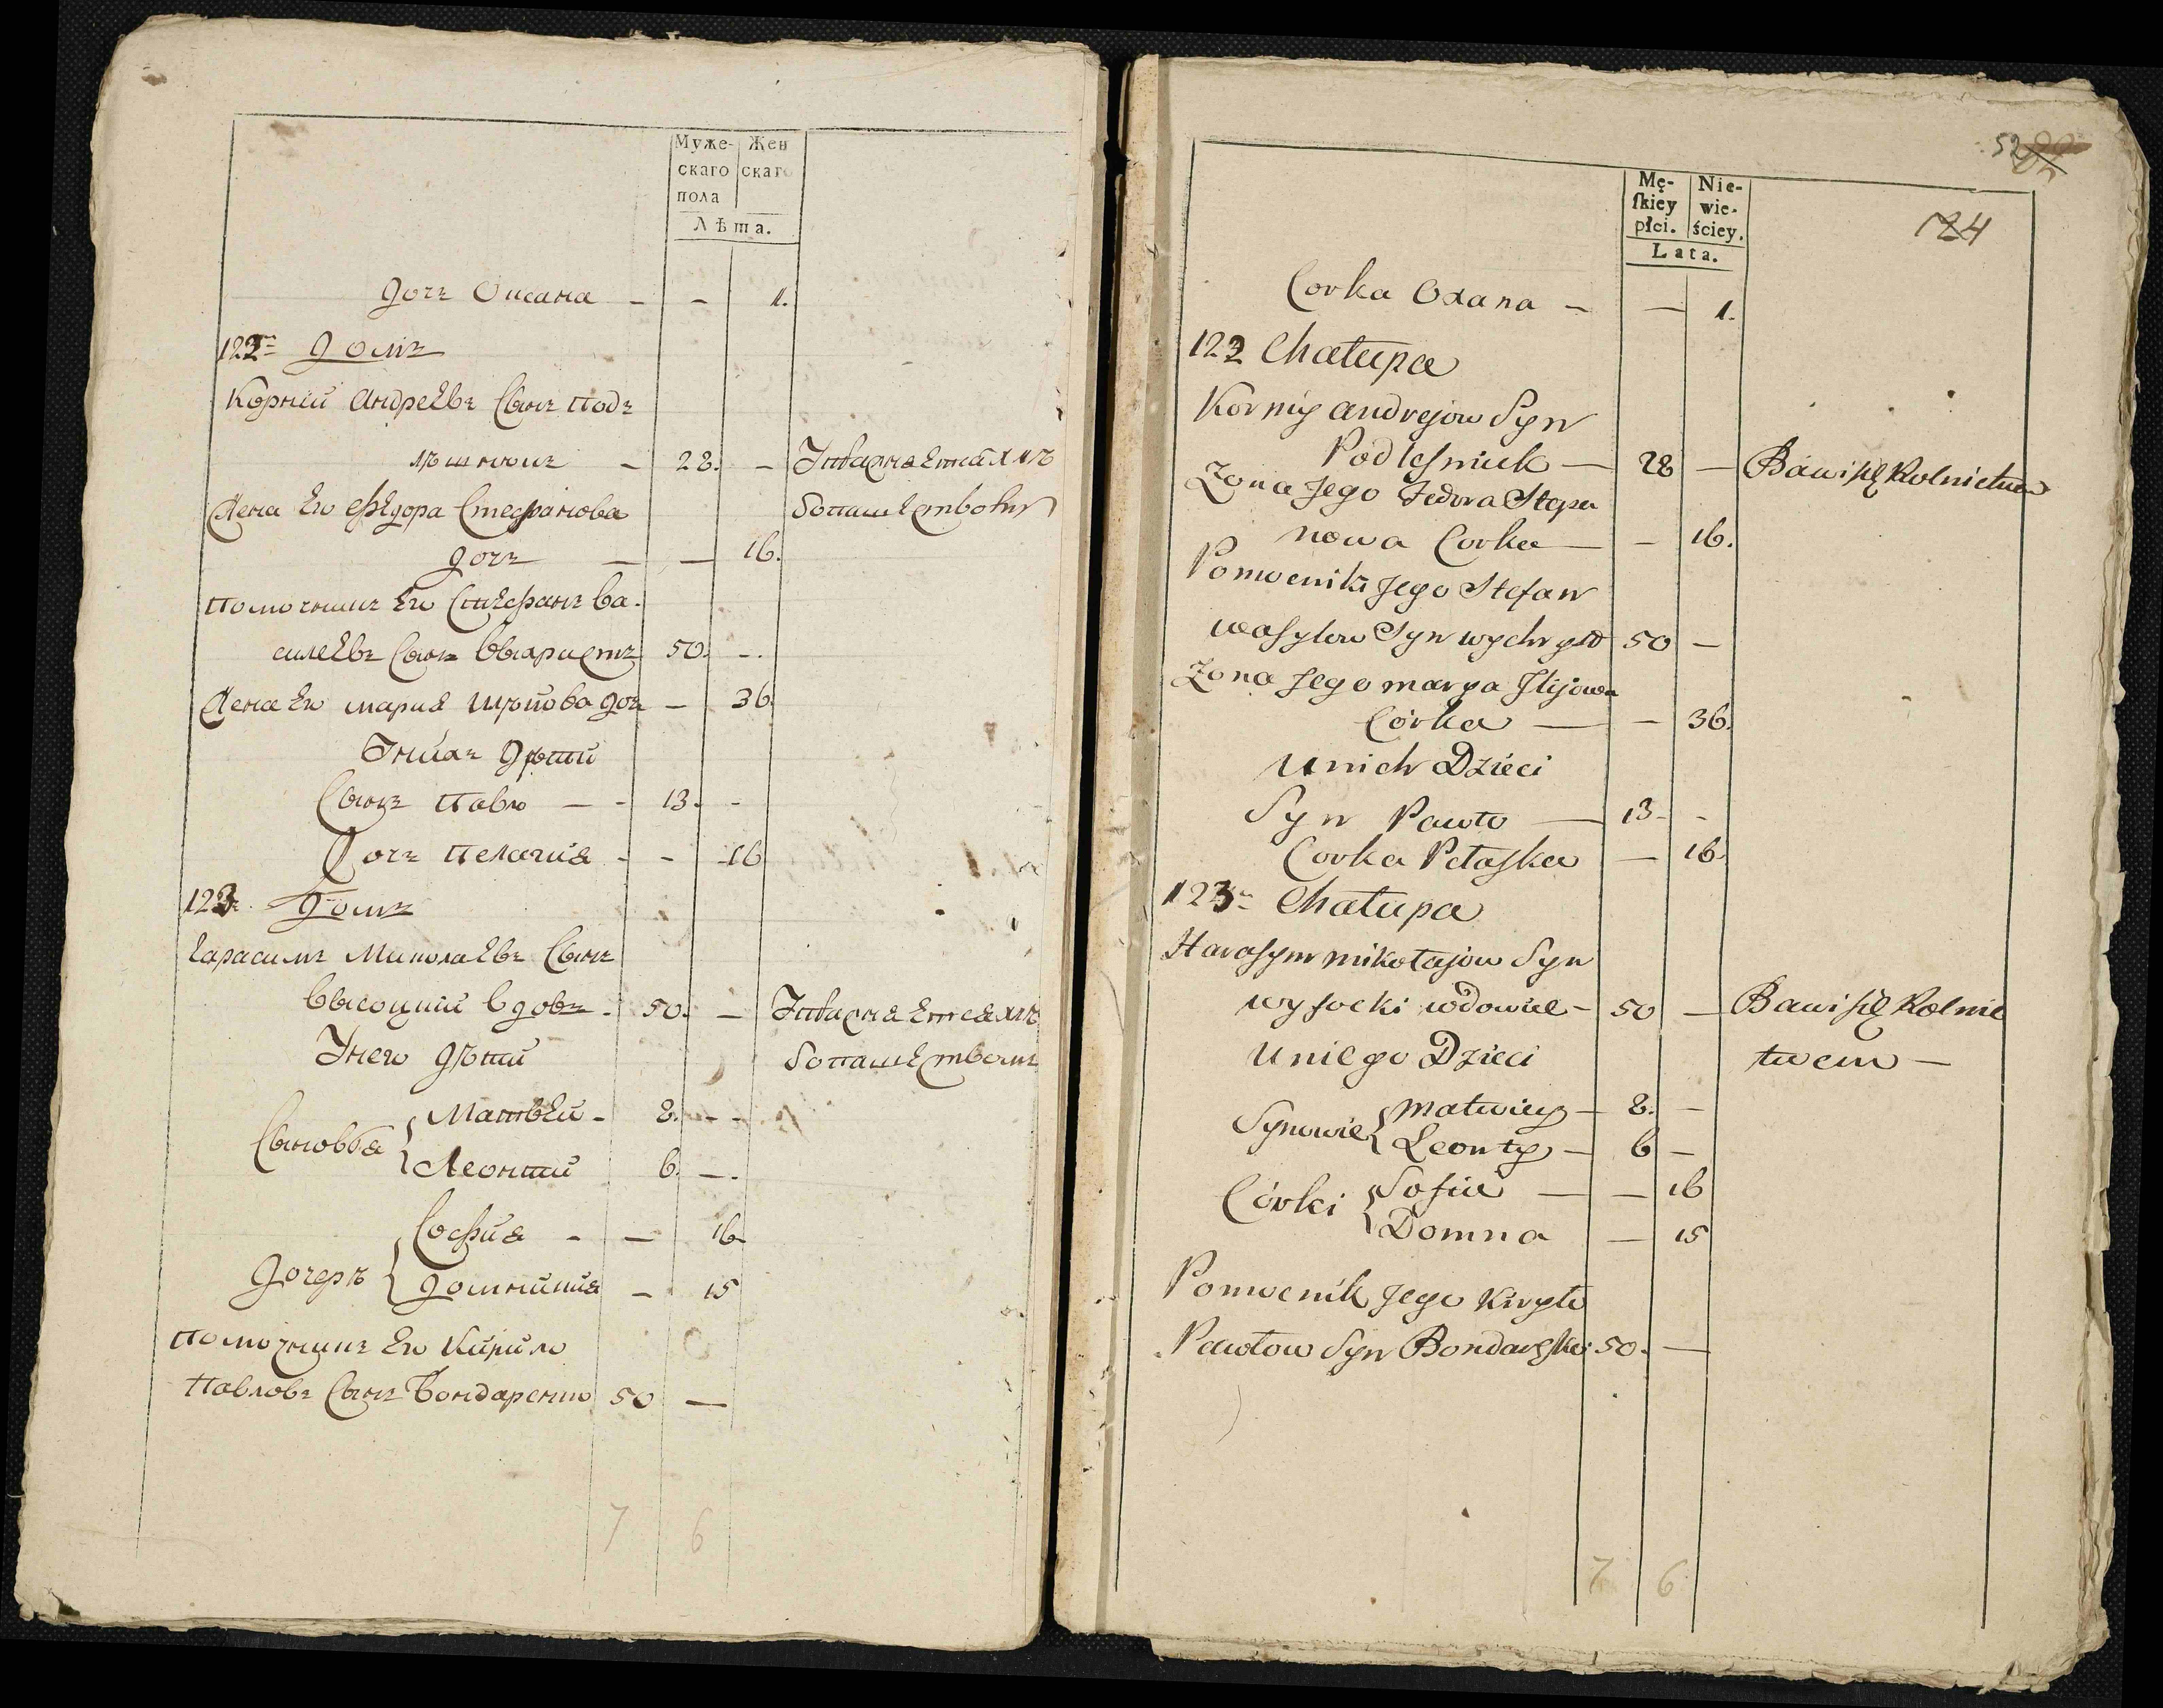 Муже-
скаго
пола
Жен
скаго
Лѣта.
дочъ Оксана - - 1.
122. домъ
Корнiй Андреевъ Сынъ Подъ
лѣшнюкъ - 28. -
Жена Его Федора Стефанова
дочъ - - 16.
Помочникъ Его Стефанъ Ва-
силевъ Сынъ Выхристъ 50. -.
Жена Его Мария Илѣйова доч - 36.
Уныхъ дѣти
Сынъ Павло - - 13. -
Дочъ Пелагия - - 16
123. домъ
Гарасимъ Миколаевъ Сынъ
Высоцкий Вдовъ. 50. -
Унего дѣти
Сыновья { Матвѣй - 8. - -
Леонтий 6. -.
Дочерѣ { София - - 16
Домникия - 15
Помочникъ Его Кирило
Павловъ Сынъ Бондаренко 50 -
7 6
52
124
Mę-
ſkiey
płci.
Nie-
wie-
ściey.
Lata.
Corka Oxana - - 1.
122 Chałupa
Korniy Andrejow Syn
Podleſniuk - 28 - Bawi ſię Rolnictwem
Zona Jego Fedora Stepa
nowa Corka - - 16.
Pomocnik Jego Stefan
Wasylow Syn Wychryst 50 -
Zona Jego Marya Ilijowa
Córka - - 36.
U nich Dzieci
Syn Pawło - 13 - -
Corka Pełaſka - 16.
123 Chałupa
Haraſym Mikołajow Syn
Wyſocki wdowiec - 50 - Bawi ſię Rolnic
U niego Dzieci twem -
Synowie { Matwiey - 8. -
Leonty - 6 -
Córki { Sofia - - 16
Domna - 15
Pomocnik Jego Kiryło
Pawłow Syn Bondarſki 50. -
7 6